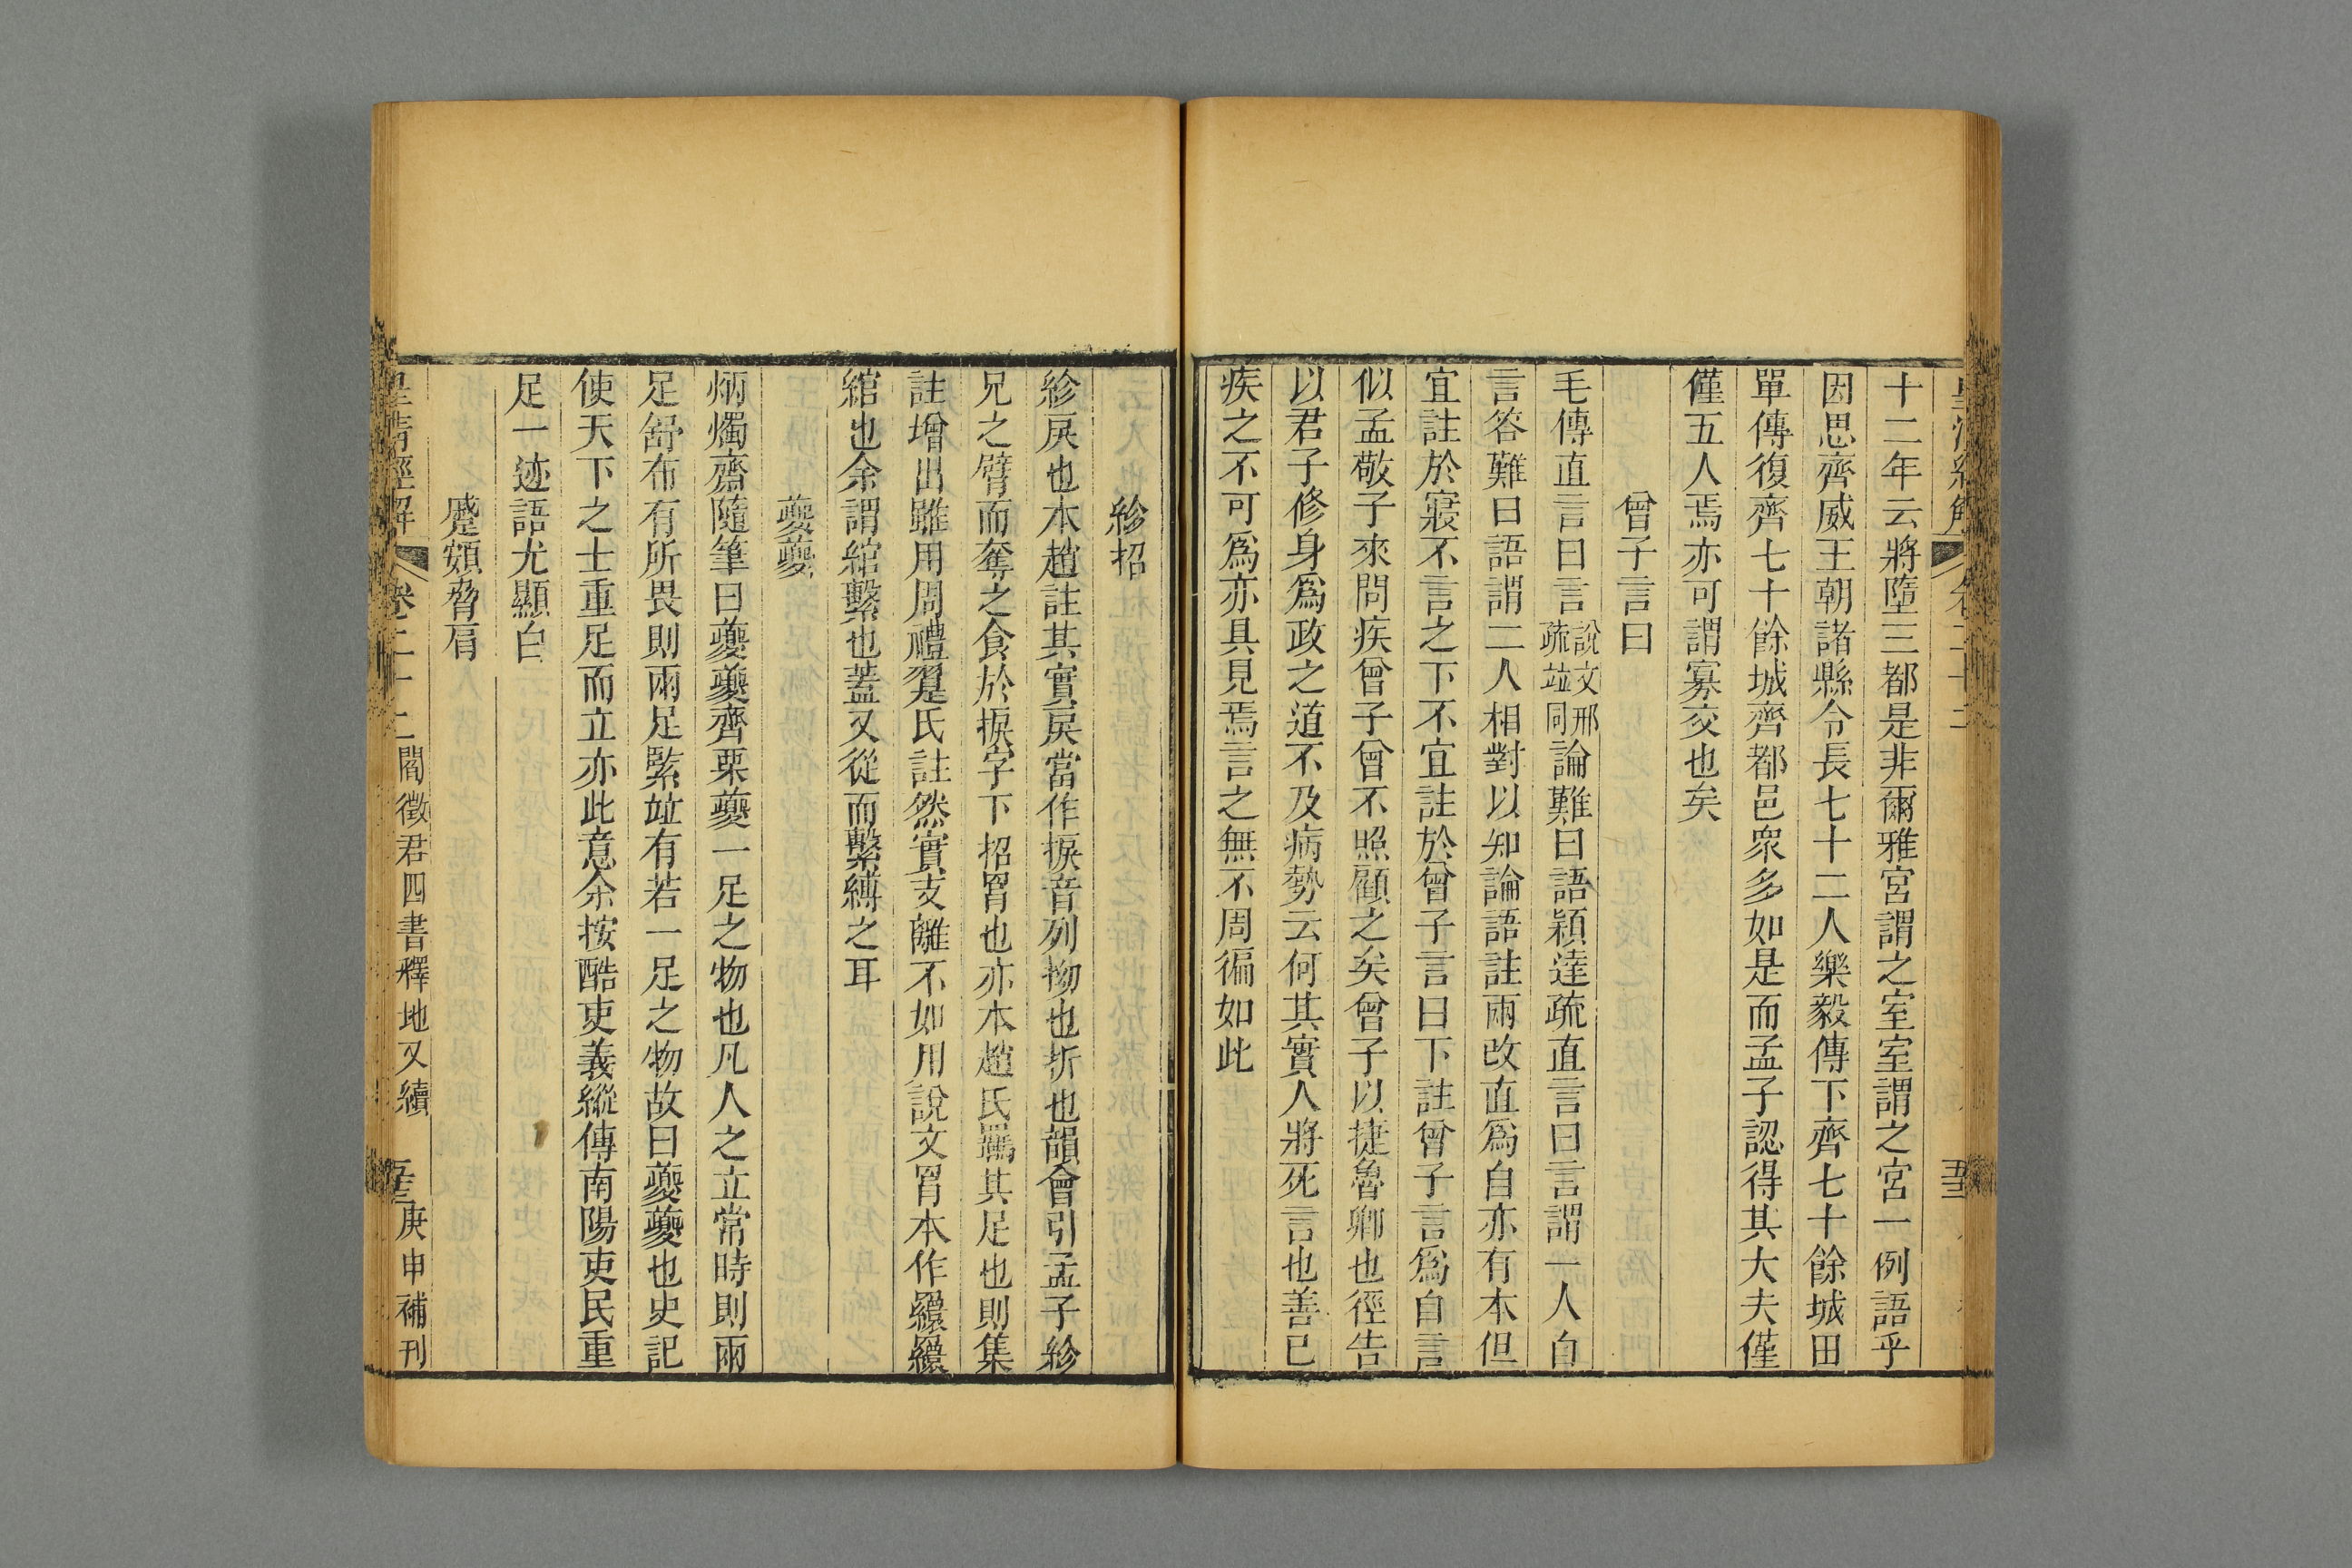 十二年云將墮三都是非爾雅宮謂之室室謂之宮一例語乎
因思齊威王朝諸縣令長七十二人樂毅傳下齊七十餘城田
單傳復齊七十餘城齊都邑眾多如是而孟子認得其大夫僅
僅五人焉亦可謂寡交也矣
曾子言曰
毛傳直言曰言說文邢疏竝同論難曰語穎達疏直言曰言謂一人自
言答難曰語謂二人相對以知論語註兩改直爲自亦有本但
宜註於寢不言之下不宜註於曾子言曰下註曾子言爲自言
似孟敬子來問疾曾子曾不照顧之矣曾子以捷魯卿也徑告
以君子修身爲政之道不及病勢云何其實人將死言也善已
疾之不可爲亦具見焉言之無不周徧如此
紾招
紾戾也本趙註其實戾當作捩音列拗也折也韻會引孟子紾
兄之臂而奪之食於捩字下招罥也亦本趙氏羈其足也則集
註增出雖用周禮翨氏註然實支離不如用說文罥本作繯繯
綰也余謂綰繫也蓋又從而繫縛之耳
夔夔
炳燭齋隨筆曰夔夔齊栗夔一足之物也凡人之立常時則兩
足舒布有所畏則兩足緊竝有若一足之物故曰夔夔也史記
使天下之士重足而立亦此意余按酷吏義縱傳南陽吏民重
足一迹語尤顯白
蹙頞脅肩
皇清經解 卷二十二 閻徵君四書釋地又續 五十三 庚申補刊